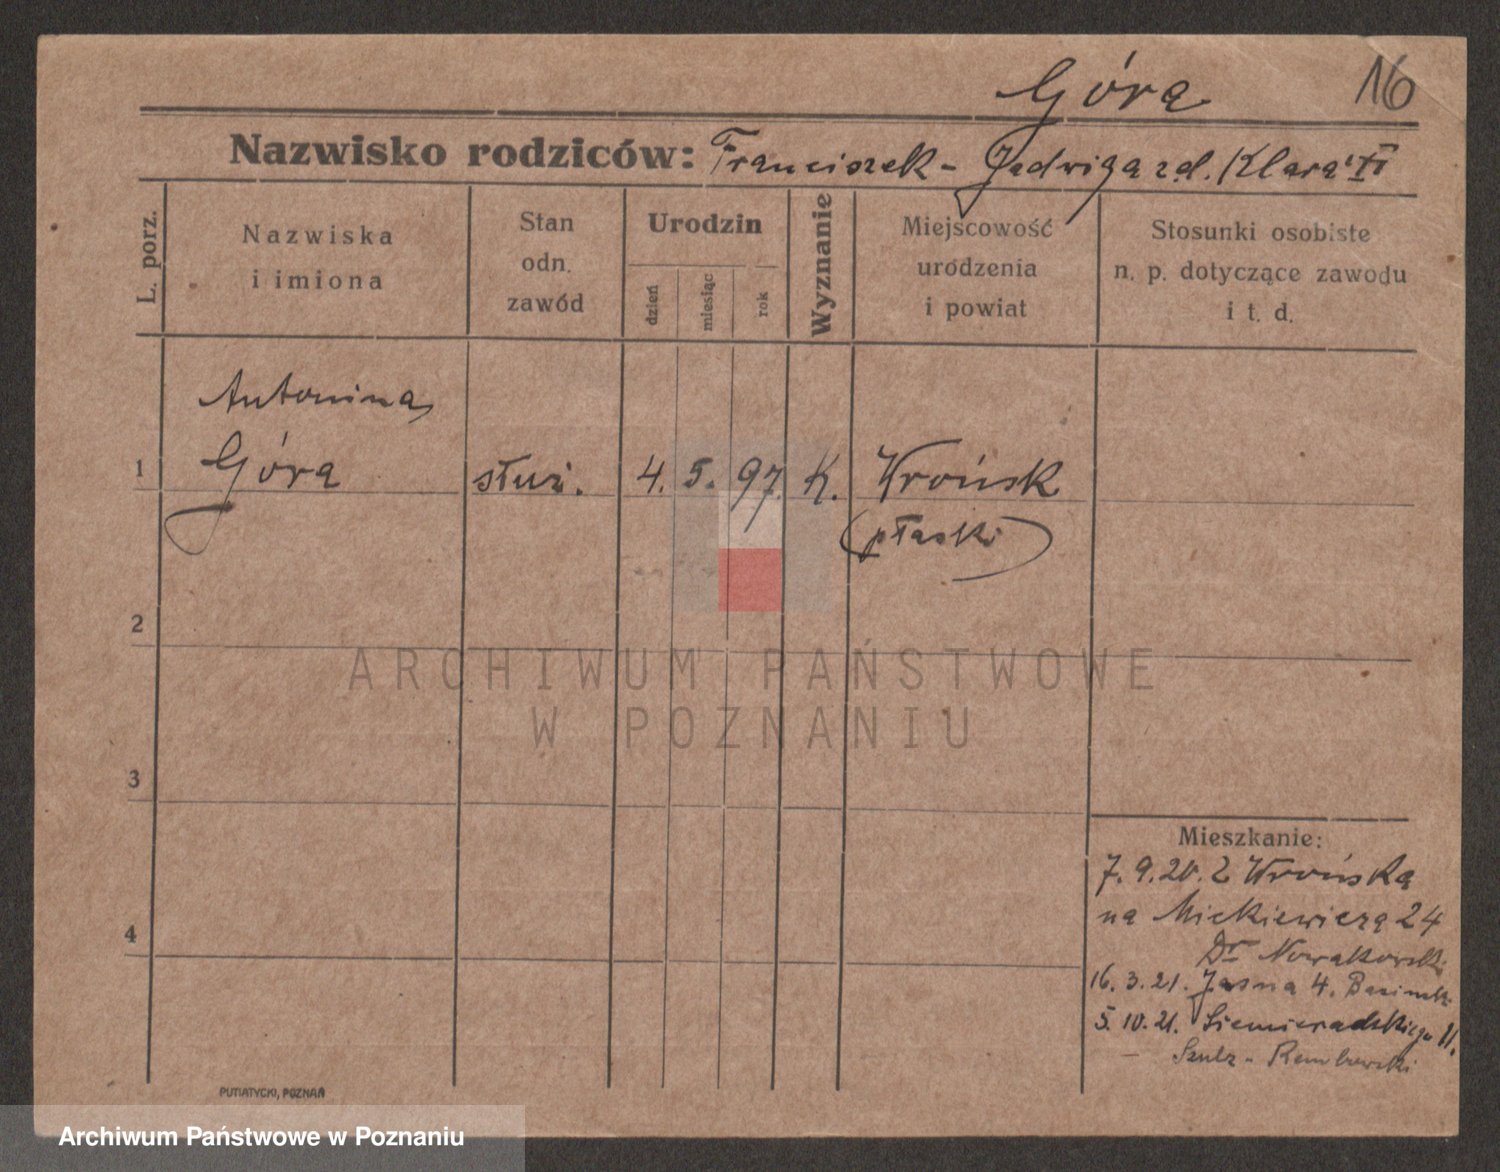 Góra 16
Nazwisko rodziców: Franciszek - Jadwiga zd.
L. porz.
Nazwiska
i imiona
Stan
odn.
zawód
Urodzin
dzień
miesiąc
rok
Wyznanie
Miejscowość
urodzenia
i powiat
Stosunki osobiste
n. p. dotyczące zawodu
i t. d.
Antonina
1 Góra służ. 4. 5. 97. K. Wrońsk
2
ARCHIWUM PAŃSTWOWE
W POZNANIU
3
4
Mieszkanie:
7. 9. 20. z Wrońska
na Mickiewicza 24
Dr Nowakowski
16. 3. 21. Jasna 4.
5. 10. 21. Siemieradzkiego 11.
Szulz - Rembowski
PUTIATYCKI, POZNAŃ
Archiwum Państwowe w Poznaniu